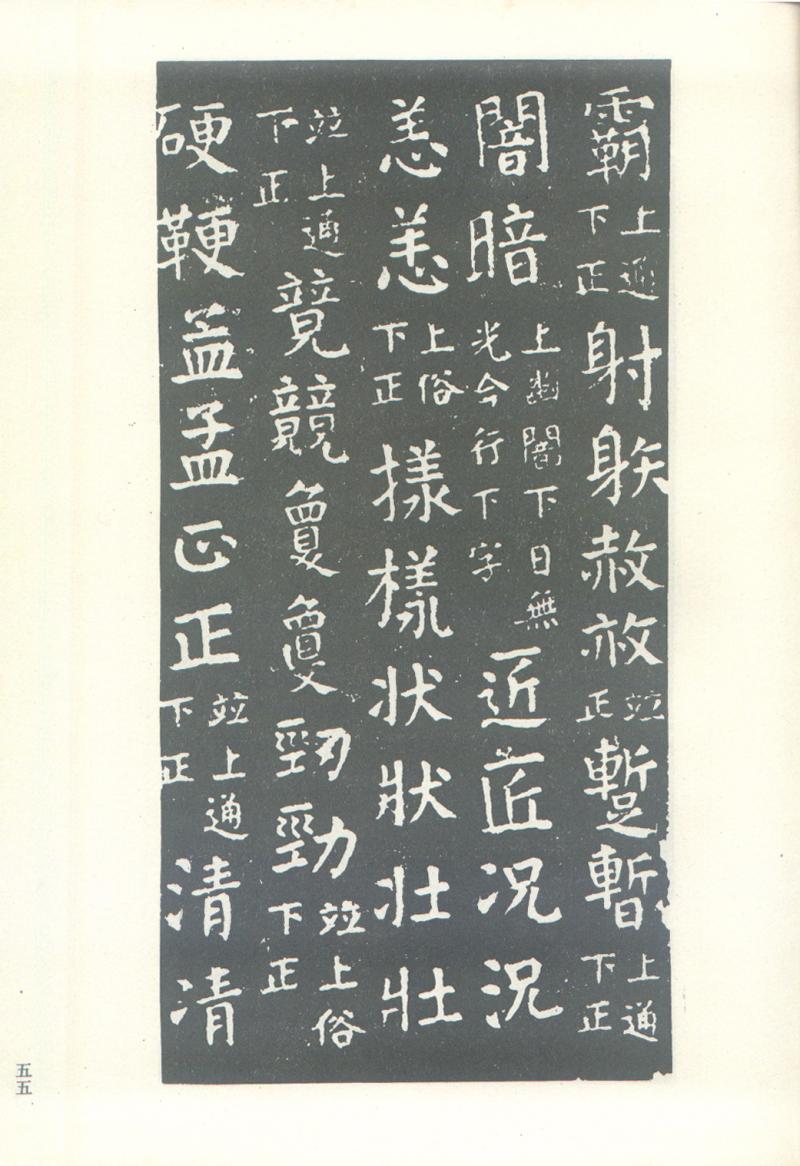 霸上通下正射躲赦𢼜並正蹔暫上通下正
闇暗上幽闇下日無光今行下字近匠况況
恙恙上俗下正様樣状狀壮壯
並上通下正竸競敻敻勁勁並上俗下正
硬鞕孟孟𤴓正並上通下正清凊
五五